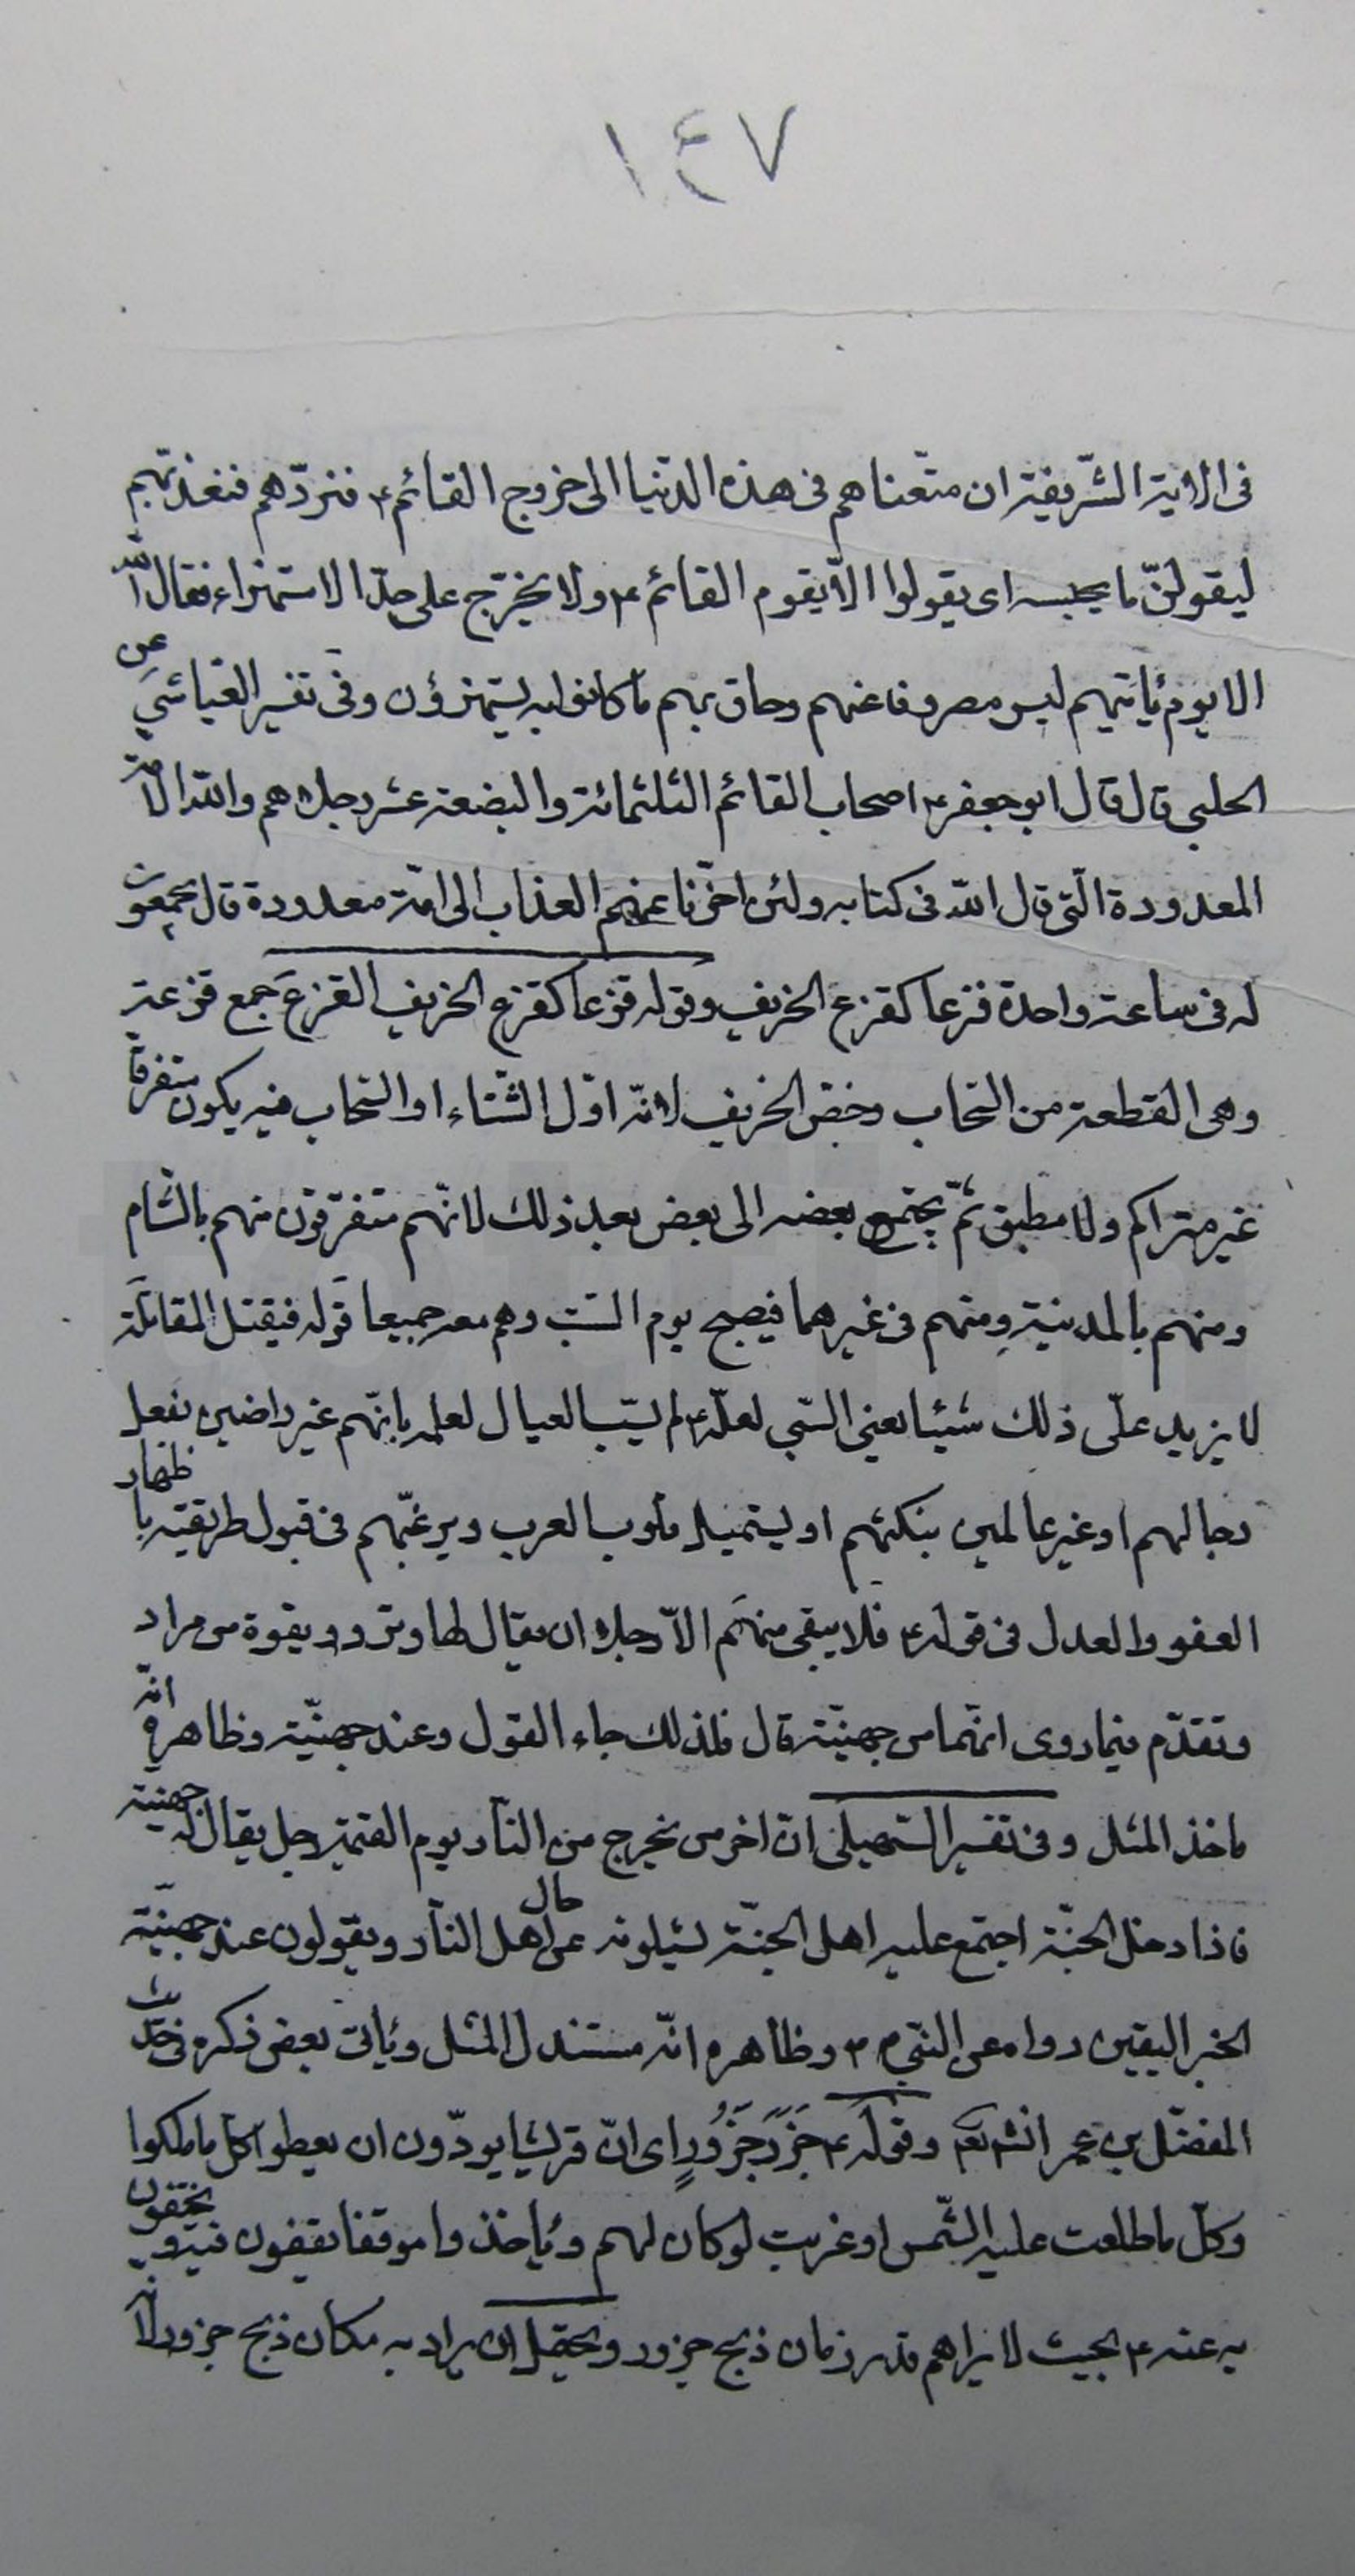 ١٤٧
فى الاية الشّريفة ان متّعناهم فى هذه الدّنيا الى خروج القائم ع فنردّهم فنعذّبهم
ليقولنّ ما يحبسه اى يقولوا الاّ يقوم القائم ع ولا يخرج على حدّ الاستهزاء فقال الله
الا يوم يأتيهم ليس مصروفا عنهم وحاق بهم ما كانوا به يستهزؤن وفى تفسير العيّاشي عن
الحلبى قال قال ابو جعفر ع اصحاب القائم الثلثمائة والبضعة عشر رجلا هم والله الامة
المعدودة الّتى قال الله فى كتابه ولئن اخّرنا عنهم العذاب الى امّة معدودة قال يجمعون
له فى ساعة واحدة قزعا كقزع الخريف وقوله قزعا كقزع الخريف القزع جمع قزعة
وهى القطعة من السّحاب وخصّ الخريف لانّه اوّل الشّتاء او السّحاب فيه يكون متفرقا
غير متراكم ولا مطبق ثمّ يجتمع بعضه الى بعض بعد ذلك لانّهم متفرّقون منهم بالشام
ومنهم بالمدينة ومنهم فى غيرهما فيصبح يوم السّبت وهم معه جميعا قوله فيقتل المقاتلة
لا يزيد على ذلك شيئا يعنى السّبى لعلّه ع لم يسّب العيال لعلمه بانّهم غير راضين بفعل
رجالهم او غير عالمين بنكثهم او ليستميل قلوب العرب ويرغّبهم فى قبول طريقته باظهار
العفو والعدل فى قوله ع فلا يبقى منهم الاّ رجل ان يقال لها وتر وويقوة من مراد
وتقدّم فيما روى انهما من جهينّة قال فلذلك جاء القول وعند جهينّة وظاهره انّه
ماخذ المثل وفى تفسير السّهيلى انّ اخر من يخرج من النّار يوم القيمة رجل يقال له جهينة
فاذا دخل الجنّة اجتمع عليه اهل الجنّة يسئلونه عن حال اهل النّار ويقولون عند جهينّة
الخبر اليقين رواه عن النّبى ص وظاهره انّه مستند للمثل ويأتى بعض ذكره فى حديث
المفضّل بن عمر انشا تعه وقوله ع جَزْرَ جَزُورٍ اى انّ قريشا يودّون ان يعطوا كلّ ما ملكوا
وكلّ ما طلعت عليه الشّمس او غربت لو كان لهم ويأخذوا موقفا يقفون فيه ويختفون
به عنه ع بحيث لا يراهم قدر زمان ذبح جزور ويحتمل ان يراد به مكان ذبح جزور لانه